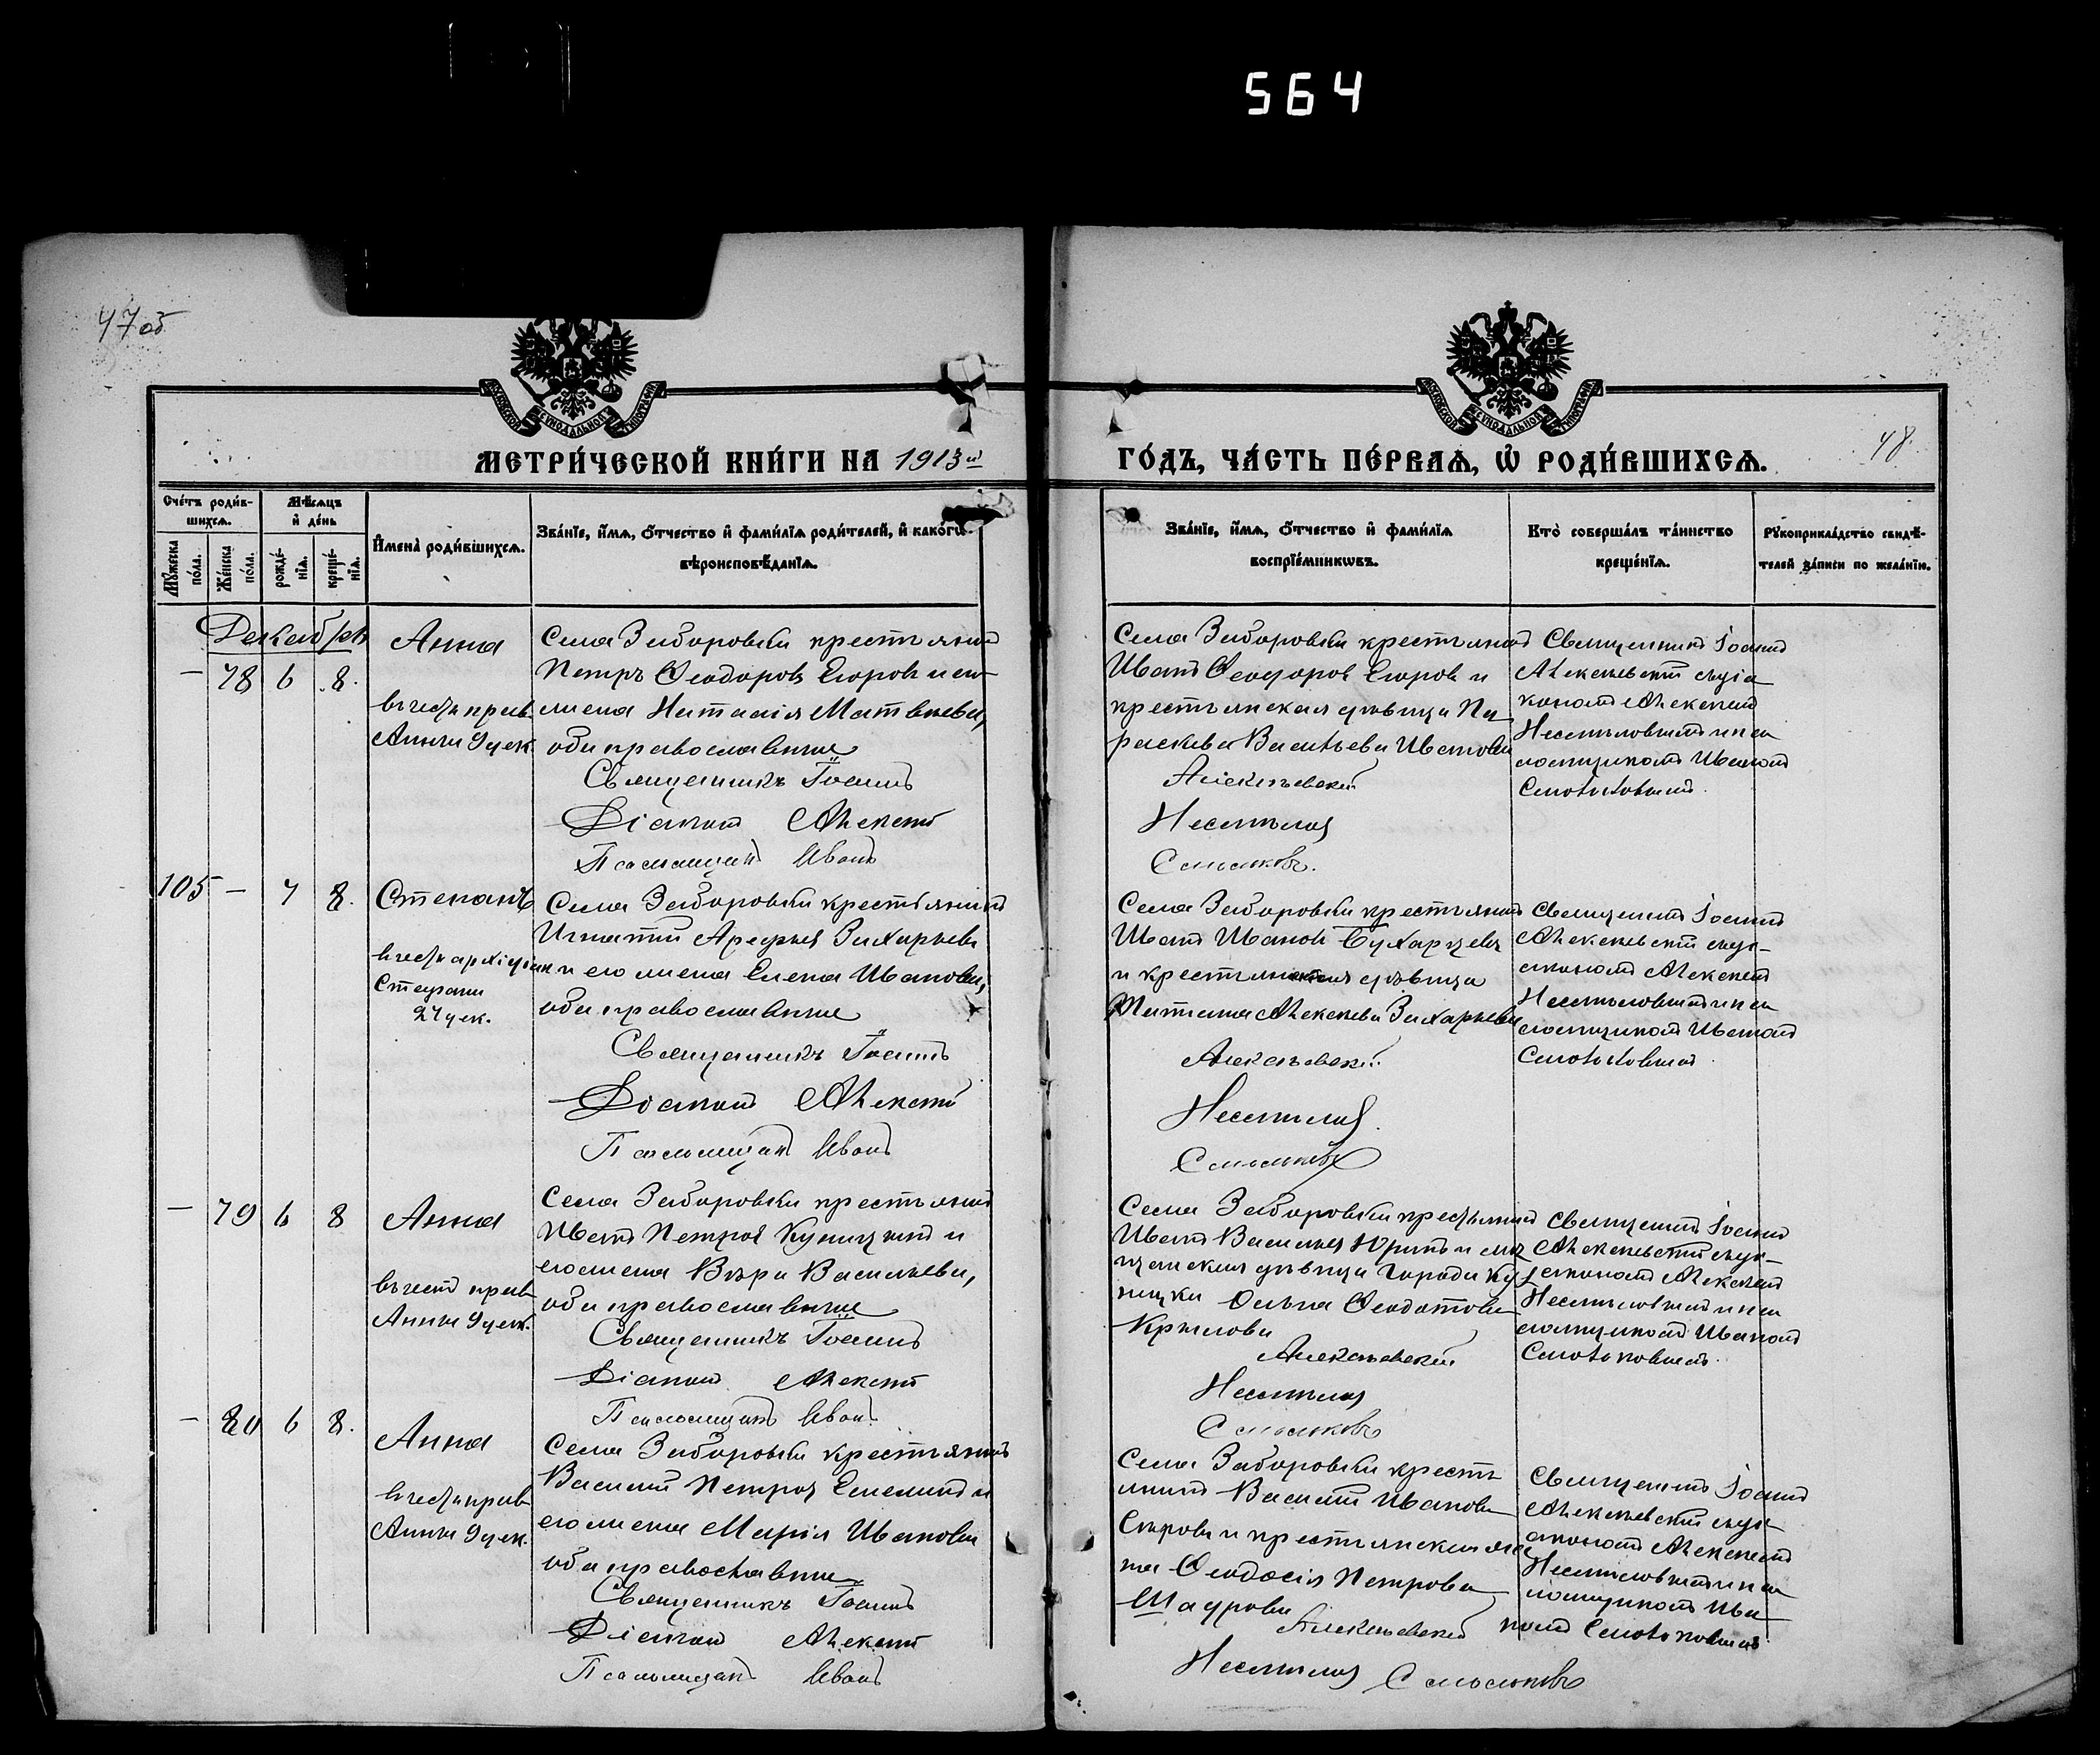 564
47 об
МЕТРИ́ЧЕСКОЙ КНИ́ГИ НА 1913й
ГО́ДЪ, ЧА́СТЬ ПЕ́РВАѦ, Ѽ РОДИ́ВШИХСѦ.
48.
Сче́тъ роди́в-
шихсѧ.
Мѣ́сѧцъ
и҆ де́нь
Мꙋ́жеска по́ла.
Же́нска по́ла.
рожде́-
нїѧ.
креще́-
нїѧ.
И҆мена̀ роди́вшихсѧ.
Зва́нїе, и҆́мѧ, ѻ҆́тчество и҆ фами́лїѧ роди́телей, и҆ како́гѡ
вѣроисповѣ́данїѧ.
Зва́нїе, и҆́мѧ, ѻ҆́тчество и҆ фами́лїѧ
воспрїе́мникѡвъ.
Кто̀ соверша́лъ та́инство
креще́нїѧ.
Рꙋкоприкла́дство свидѣ́-
телей за́писи по жела́нїю.
Декабрь
— 78 6 8.
Анна
въ честь прав.
Анны 9 дек.
Села Заборовки крестьянинъ
Петръ Ѳеодоровъ Егоровъ и его
жена Наталія Матвѣева,
оба православные
Священникъ Іоаннъ
Діаконъ Алексѣй
Псаломщикъ Иванъ
Села Заборовки крестьянинъ
Иванъ Ѳеодоровъ Егоровъ и
крестьянская дѣвица Па
раскева Васильева Иванова
Алексѣевскій
Несмѣловъ
Смольковъ.
Священникъ Іоаннъ
Алексѣевскій съ діа
кономъ Алексѣемъ
Несмѣловымъ и пса
ломщикомъ Иваномъ
Смольковымъ.
105 — 7 8.
Степанъ
въ честь архідіак
Стефана
27 дек.
Села Заборовки крестьянинъ
Игнатій Арефьевъ Захарьевъ
и его жена Елена Иванова,
оба православные
Священникъ Іоаннъ
Діаконъ Алексѣй
Псаломщикъ Иванъ
Села Заборовки крестьянинъ
Иванъ Ивановъ Бухарцевъ
и крестьянская дѣвица
Татіана Алексѣева Захарьева
Алексѣевскій
Несмѣловъ.
Смольковъ
Священникъ Іоаннъ
Алексѣевскій съ ді-
акономъ Алексѣемъ
Несмѣловымъ и пса
ломщикомъ Иваномъ
Смольковымъ.
— 79 6 8
Анна
въ честь прав.
Анны 9 дек.
Села Заборовки крестьянинъ
Иванъ Петровъ Куницынъ и
его жена Вѣра Васильева,
оба православные
Священникъ Іоаннъ
Діаконъ Алексѣй
Псаломщикъ Иванъ
Села Заборовки крестьянинъ
Иванъ Васильевъ Юринъ и мѣ
щанская дѣвица города Ку
Ольга Ѳеодотова
Крылова
Алексѣевскій
Несмѣловъ
Смольковъ
Священникъ Іоаннъ
Алексѣевскій съ ді-
акономъ Алексѣемъ
Несмѣловымъ и пса
ломщикомъ Иваномъ
Смольковымъ.
— 80 6 8.
Анна
въ честь прав
Анны 9 дек.
Села Заборовки крестьянинъ
Василій Петровъ Емелинъ и
его жена Марія Иванова
оба православные
Священникъ Іоаннъ
Діаконъ Алексѣй
Псаломщикъ Иванъ
Села Заборовки кресть
янинъ Василій Ивановъ
Сѣровъ и крестьянская же
на Ѳеодосія Петрова
Шадрова
Алексѣевскій
Несмѣловъ Смольковъ
Священникъ Іоаннъ
Алексѣевскій съ ді
акономъ Алексѣемъ
Несмѣловымъ и пса
ломщикомъ Ива
номъ Смольковымъ